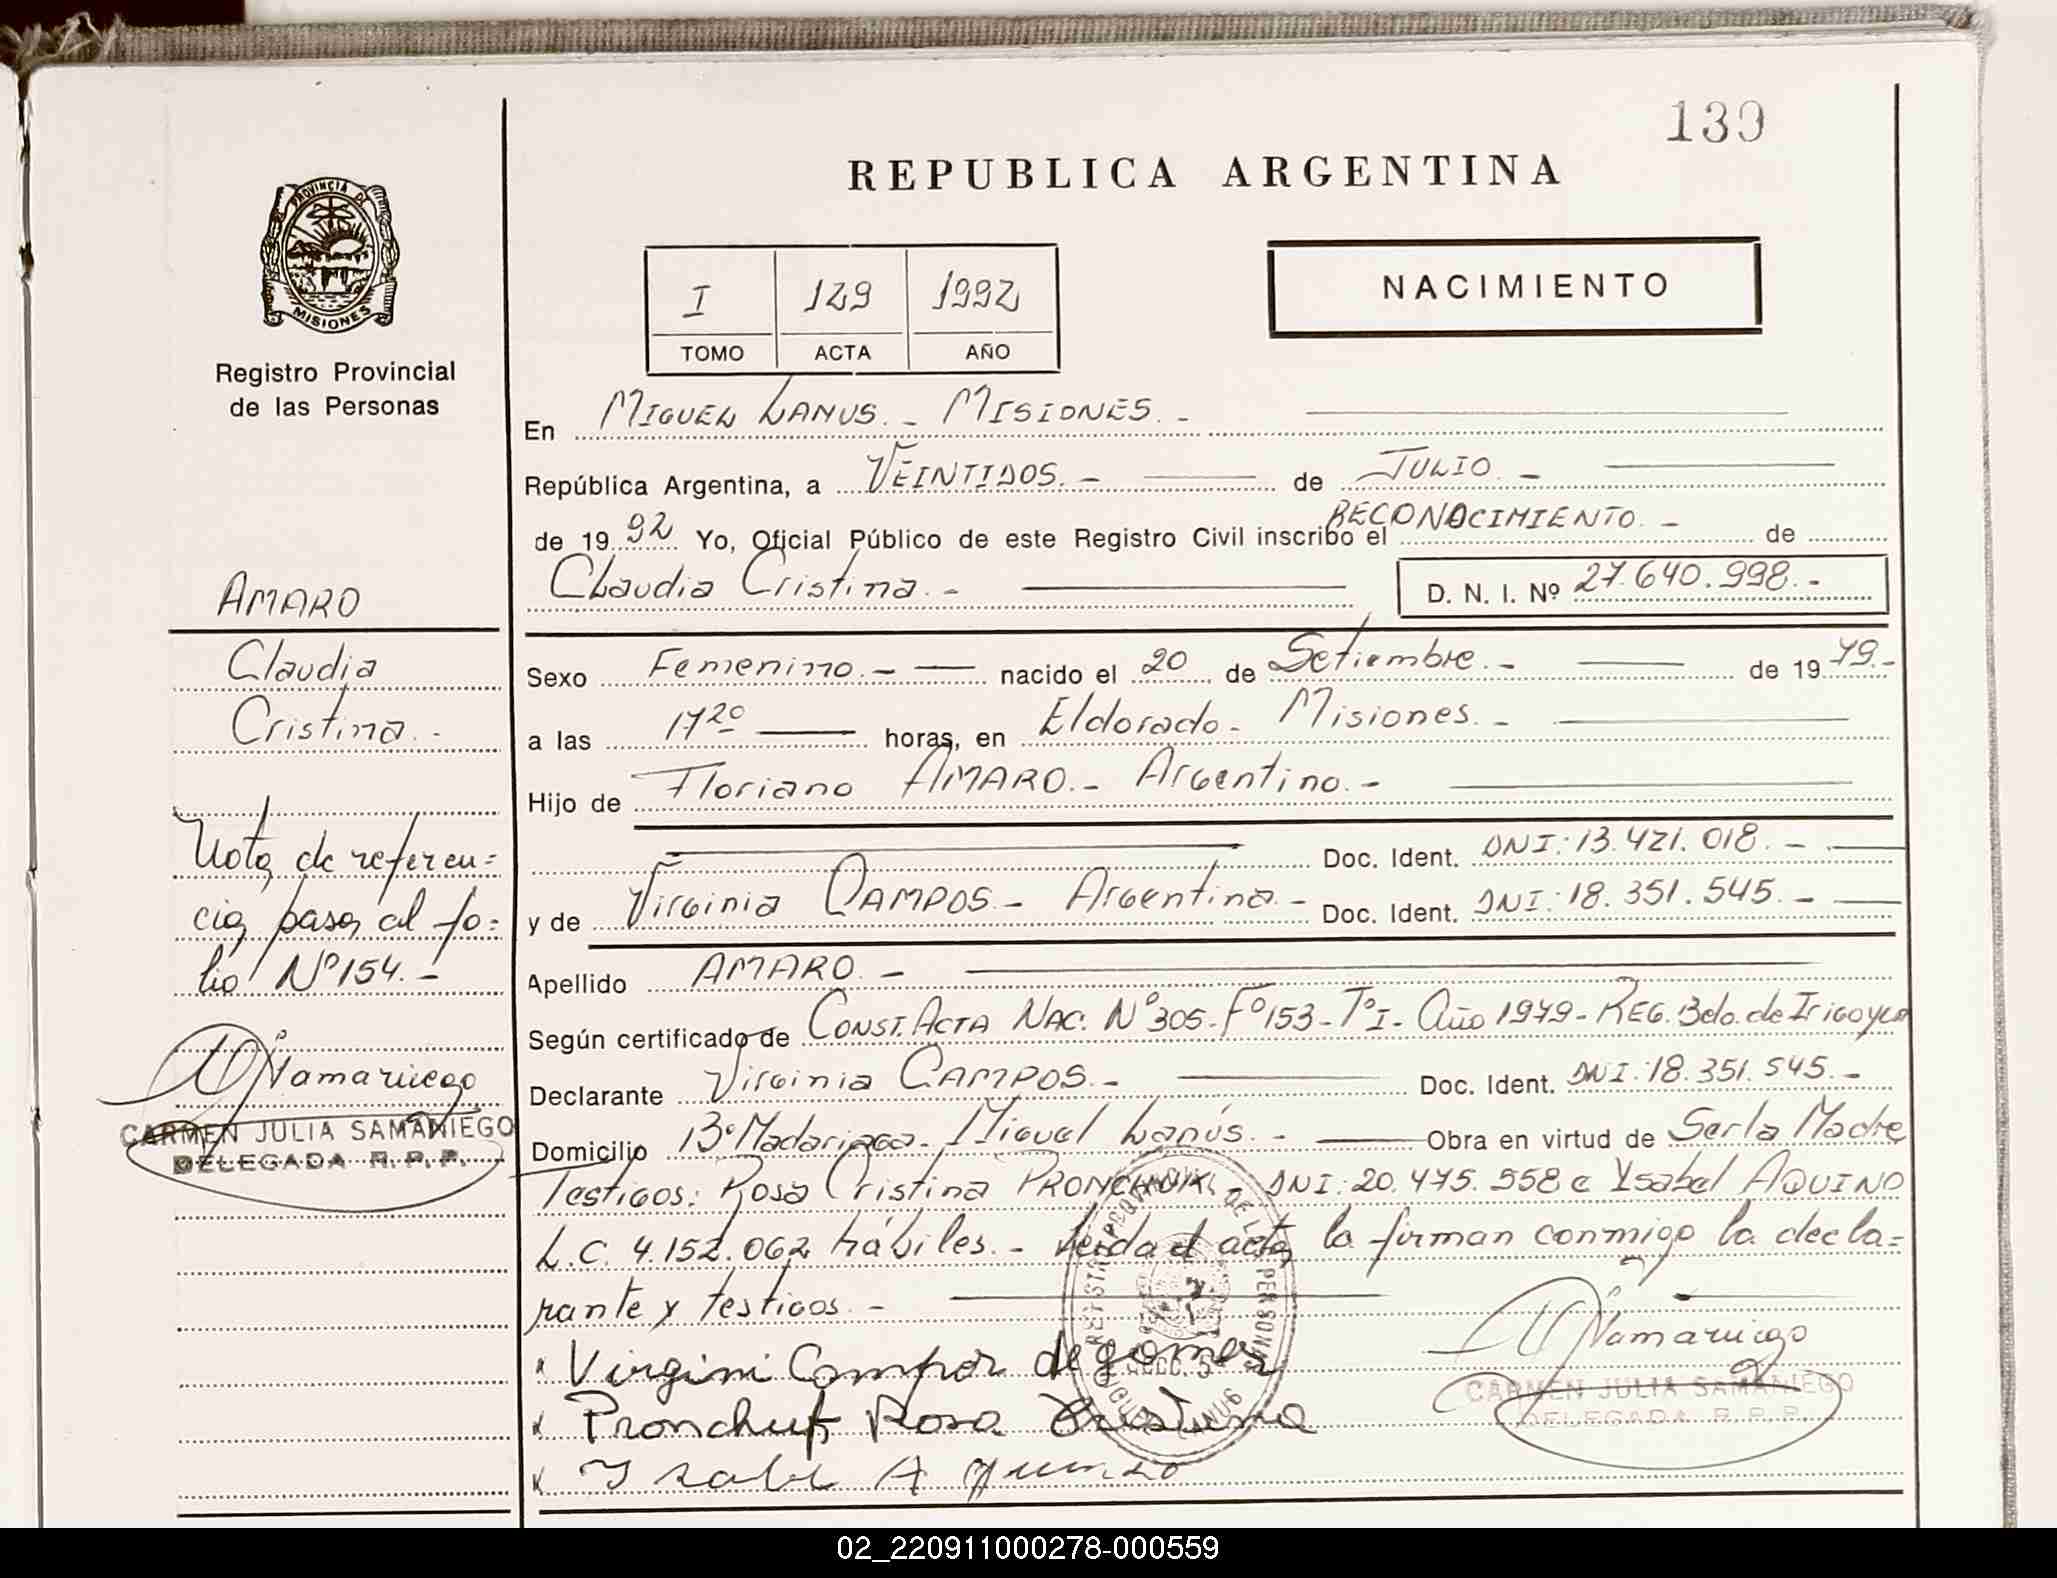 139
REPUBLICA ARGENTINA
PROVINCIA DE
MISIONES
Registro Provincial
de las Personas
I 129 1992
TOMO ACTA AÑO
NACIMIENTO
En MIGUEL LANUS.- MISIONES.-
República Argentina, a VEINTIDOS.- de JULIO.-
de 1992 Yo, Oficial Público de este Registro Civil inscribo el RECONOCIMIENTO.- de
Claudia Cristina.- D. N. I. Nº 27.640.998.-
AMARO
Claudia
Cristina.-
Sexo Femenino.- nacido el 20 de Setiembre.- de 1979.-
a las 17 20 horas, en Eldorado- Misiones.-
Hijo de Floriano AMARO.- Argentino.-
Doc. Ident. DNI: 13.421.018.-
y de Virginia CAMPOS.- Argentina.- Doc. Ident. DNI: 18.351.545.-
Nota de referen=
cia pasa al fo=
lio Nº 154.-
CARMEN JULIA SAMANIEGO
DELEGADA R. P. P.
Apellido AMARO.-
Según certificado de CONST. ACTA NAC. Nº 305- Fº 153- Tº I- Año 1979- REG. Bdo. de Irigoyen
Declarante Virginia CAMPOS.- Doc. Ident. DNI: 18.351.545.-
Domicilio Bº Madariaga- Miguel Lanús.- Obra en virtud de Ser la Madre
Testigos: Rosa Cristina PRONCHUK- DNI: 20.475.558 e Ysabel AQUINO
L.C. 4.152.062 hábiles.- Leída el acta la firman conmigo la decla=
rante y testigos.-
Virgini Campos de gomes
Pronchuk Rosa Cristina
Ysabel Aquino
CARMEN JULIA SAMANIEGO
DELEGADA R. P. P.
REGISTRO PROVINCIAL DE LAS PERSONAS
SECC. 5ª
MIGUEL LANUS
02_220911000278-000559